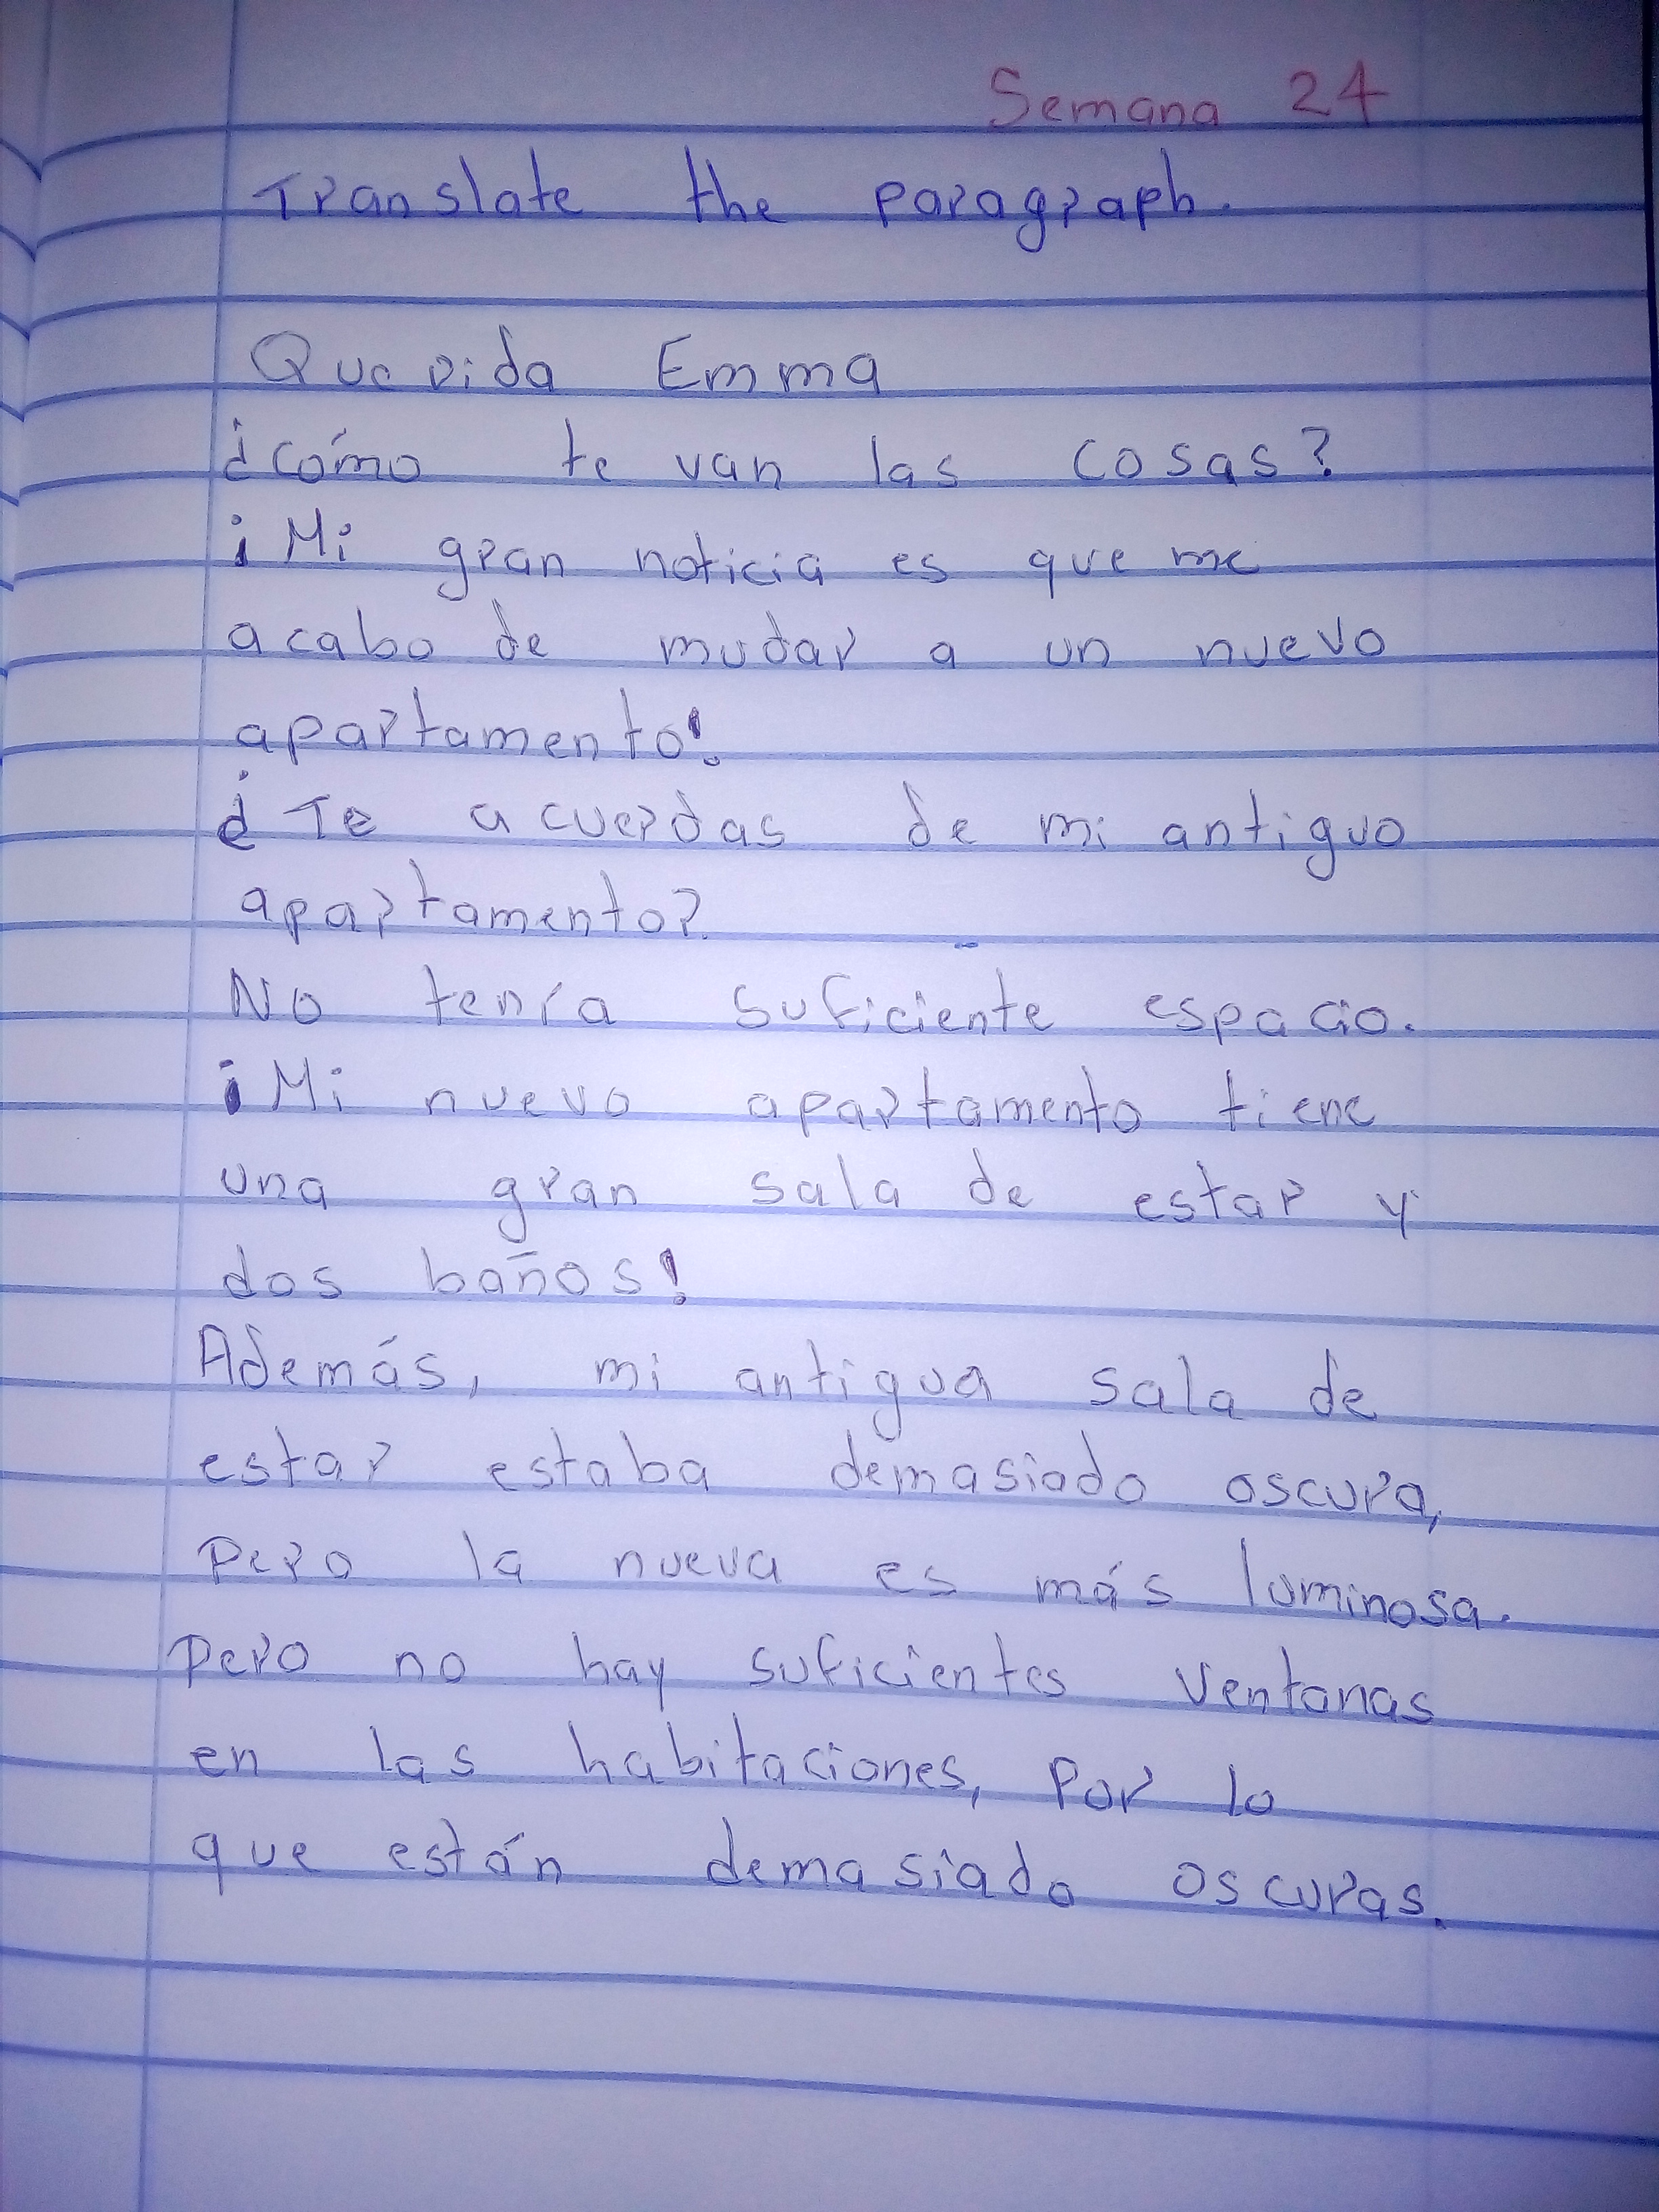 Semana 24
Translate the paragraph.
Querida Emma
¿cómo te van las cosas?
¡Mi gran noticia es que me
acabo de mudar a un nuevo
apartamento!
¿Te acuerdas de mi antiguo
apartamento?
No tenía suficiente espacio.
¡Mi nuevo apartamento tiene
una gran sala de estar y
dos baños!
Además, mi antigua sala de
estar estaba demasiado oscura,
pero la nueva es más luminosa.
Pero no hay suficientes ventanas
en las habitaciones, por lo
que están demasiado oscuras.